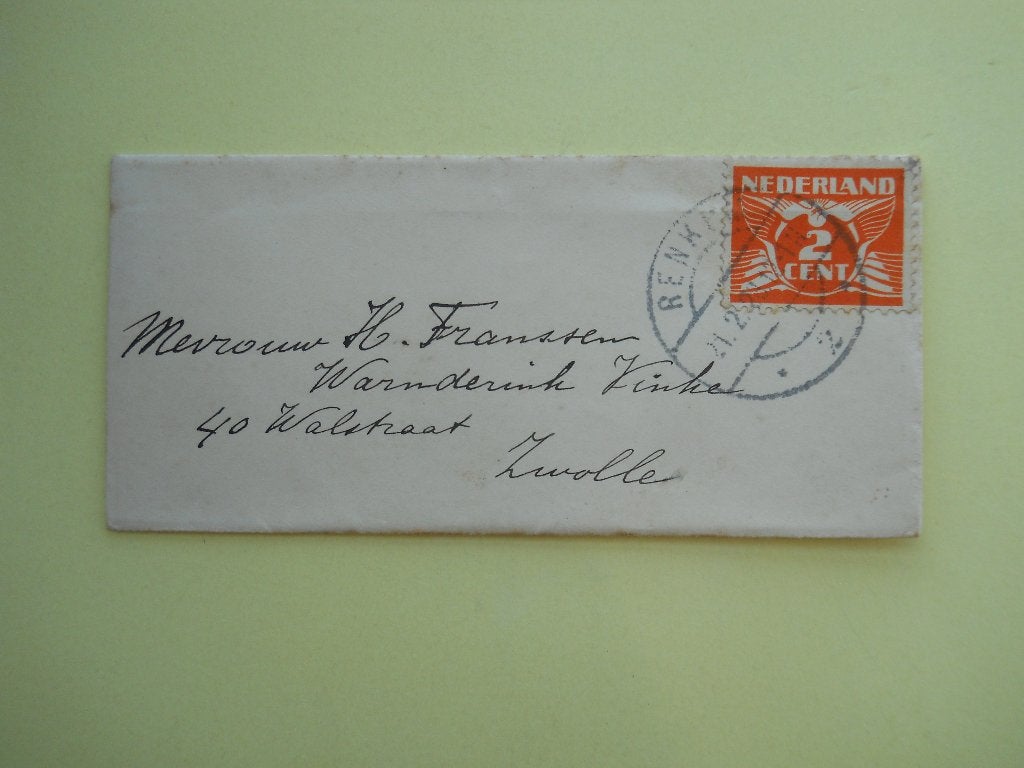 NEDERLAND
2
CENT
Mevrouw H. Franssen
Warnderink Vinke
40 Walstraat
Zwolle
2